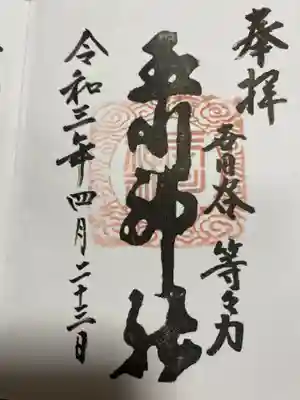 奉拝
等々力
玉川神社
令和三年四月二十三日